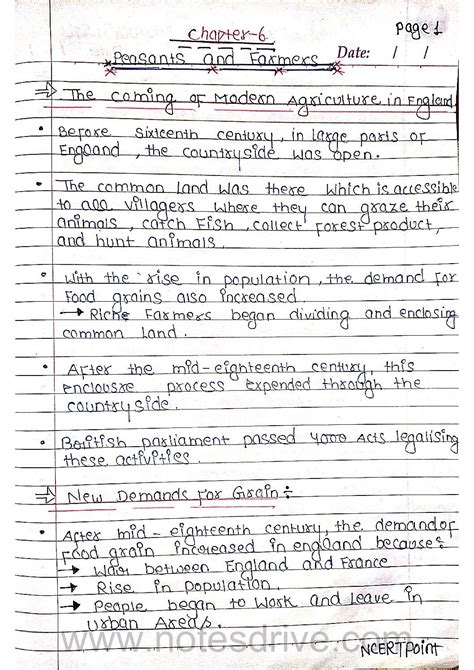 Page 1
Chapter-6
Peasants and Farmers
Date: / /
⇒ The Coming of Modern Agriculture in England
• Before sixteenth century, in large parts of
England, the countryside was open.
• The common land was there which is accessible
to all villagers where they can graze their
animals, catch fish, collect forest product,
and hunt animals.
• With the rise in population, the demand for
food grains also increased.
→ Riche Farmers began dividing and enclosing
common land.
• After the mid-eighteenth century, this
enclousre process expended through the
countryside.
• British parliament passed 4000 Acts legalising
these activities.
⇒ New Demands for Grain÷
• After mid - eighteenth century, the demand of
food grain increased in england because:
→ War between England and France
→ Rise in population.
→ People began to work and leave in
urban Areas.
www.notesdrive.com
NCERTPoint